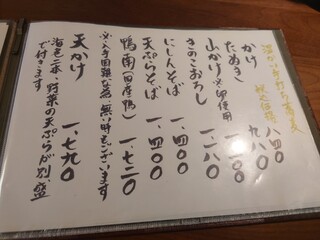 温かい手打ち蕎麦
税込価格
かけ 八四〇
たぬき 九八〇
山かけ ※卵使用 一、二〇〇
きのこおろし 一、二八〇
にしんそば 一、四〇〇
天ぷらそば 一、四〇〇
鴨南(国産鴨) 一、七二〇
※入手困難な為、無い時もございます
天かけ 一、七九〇
海老二本・野菜の天ぷらが別盛
で付きます